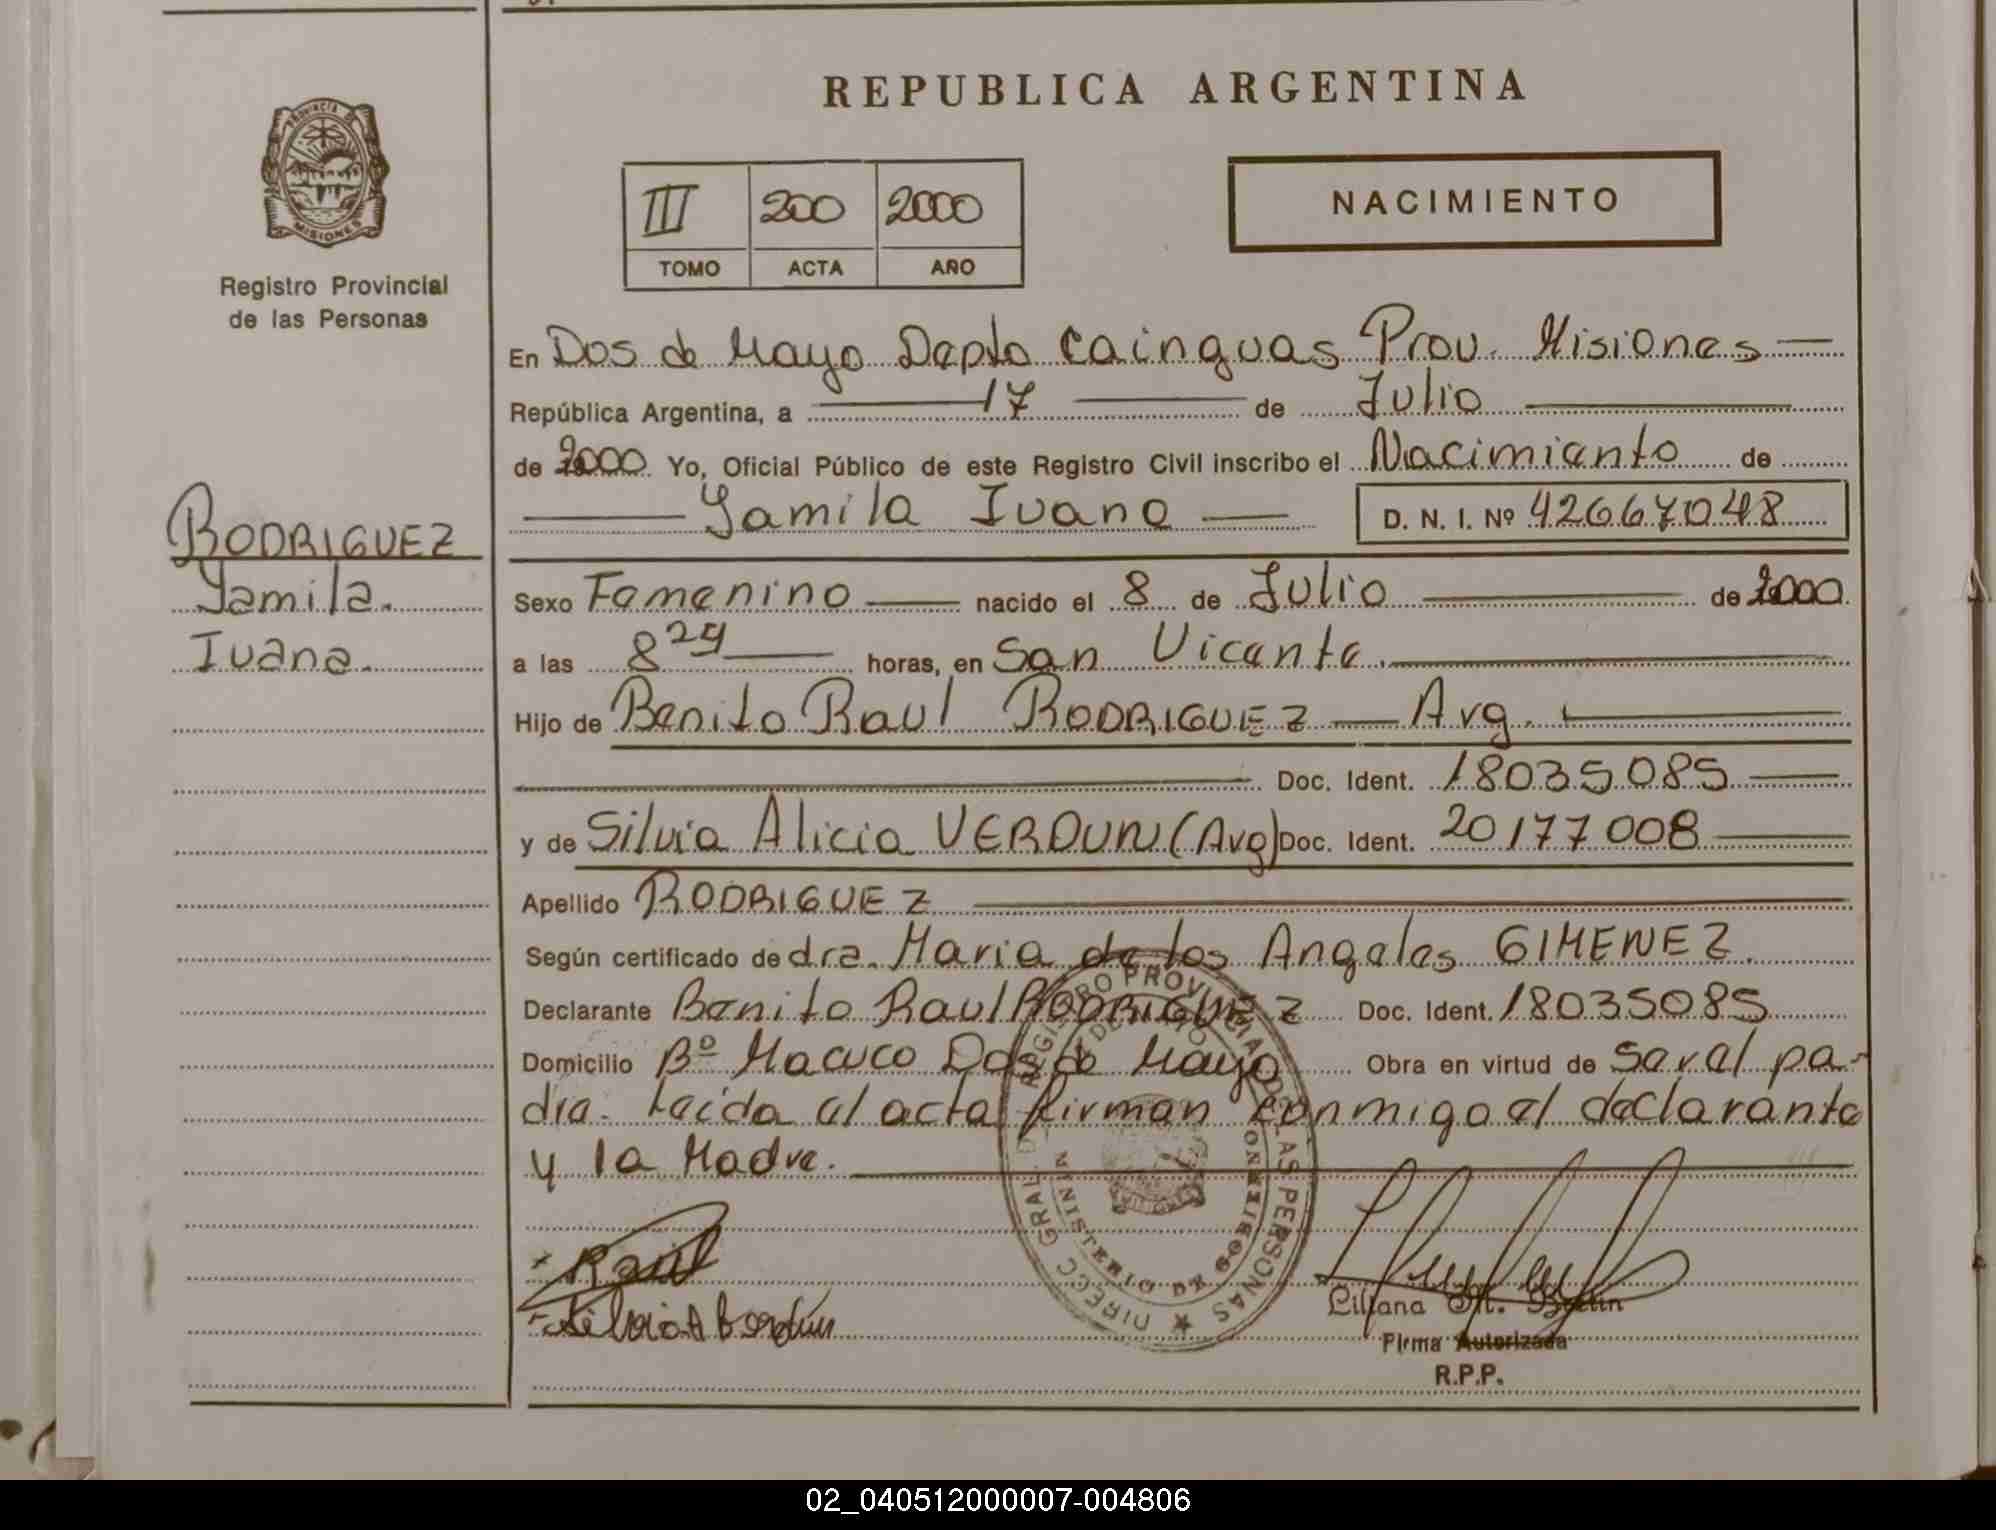 REPUBLICA ARGENTINA
PROVINCIA DE MISIONES
Registro Provincial
de las Personas
III 200 2000
TOMO ACTA AÑO
NACIMIENTO
RODRIGUEZ
Yamila.
Ivana.
En Dos de Mayo Depto Cainguas Prov. Misiones
República Argentina, a 17 de Julio
de 2000 Yo, Oficial Público de este Registro Civil inscribo el Nacimiento de
Yamila Ivana D. N. I. Nº 42667048
Sexo Femenino nacido el 8 de Julio de 2000
a las 8 29 horas, en San Vicente.
Hijo de Benito Raul RODRIGUEZ — Arg.
Doc. Ident. 18035085
y de Silvia Alicia VERDUN (Arg) Doc. Ident. 20177008
Apellido RODRIGUEZ
Según certificado de dra. Maria de los Angeles GIMENEZ.
Declarante Benito Raul RODRIGUEZ Doc. Ident. 18035085
Domicilio Bº Macuco Dos de Mayo Obra en virtud de Ser el pa-
dre. Leida el acta firman conmigo el declarante
y la Madre.
DIRECC GRAL DEL REGISTRO PROVINCIAL DE LAS PERSONAS
MINISTERIO DE GOBIERNO
Raul
Silvia A Verdun
Liliana M.
Firma Autorizada
R.P.P.
02_040512000007-004806